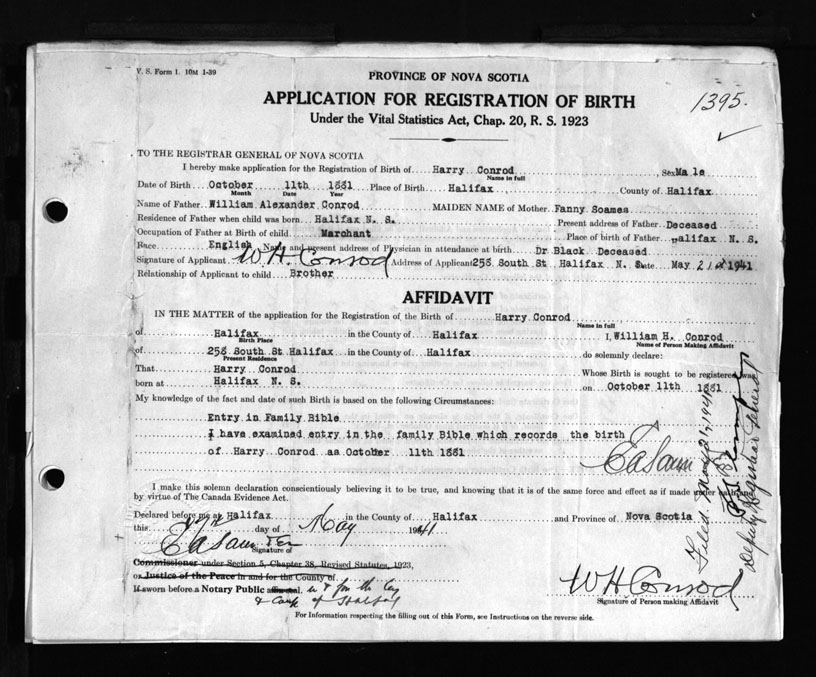 V. S. Form 1. 10M 1-39
PROVINCE OF NOVA SCOTIA
APPLICATION FOR REGISTRATION OF BIRTH
1395.
Under the Vital Statistics Act, Chap. 20, R. S. 1923
TO THE REGISTRAR GENERAL OF NOVA SCOTIA
I hereby make application for the Registration of Birth of Harry Conrod Sex Male
Name in full
Date of Birth October 11th 1881 Place of Birth Halifax County of Halifax
Month Date Year
Name of Father William Alexander Conrod MAIDEN NAME of Mother Fanny Soames
Residence of Father when child was born Halifax N. S. Present address of Father Deceased
Occupation of Father at Birth of child Marchant Place of birth of Father Halifax N. S.
Race English Name and present address of Physician in attendance at birth Dr Black Deceased
Signature of Applicant W H. Conrod Address of Applicant 258 South St Halifax N. S. Date May 21st 1941
Relationship of Applicant to child Brother
AFFIDAVIT
IN THE MATTER of the application for the Registration of the Birth of Harry Conrod
Name in full
of Halifax in the County of Halifax I, William H. Conrod
Birth Place Name of Person Making Affidavit
of 258 South St Halifax in the County of Halifax do solemnly declare:
Present Residence
That Harry Conrod Whose Birth is sought to be registered was
born at Halifax N. S. on October 11th 1881
My knowledge of the fact and date of such Birth is based on the following Circumstances:
Entry in Family Bible
I have examined entry in the family Bible which records the birth
of Harry Conrod as October 11th 1881
I make this solemn declaration conscientiously believing it to be true, and knowing that it is of the same force and effect as if made under oath and
by virtue of The Canada Evidence Act.
Declared before me at Halifax in the County of Halifax and Province of Nova Scotia
this day of May 1941
Signature of
Commissioner under Section 5, Chapter 38, Revised Statutes, 1923,
or Justice of the Peace in and for the County of
If sworn before a Notary Public affix seal. in & for the
of Halifax
W H Conrod
Signature of Person making Affidavit
For Information respecting the filling out of this Form, see Instructions on the reverse side.
Filed May 21, 1941
Deputy Registrar General